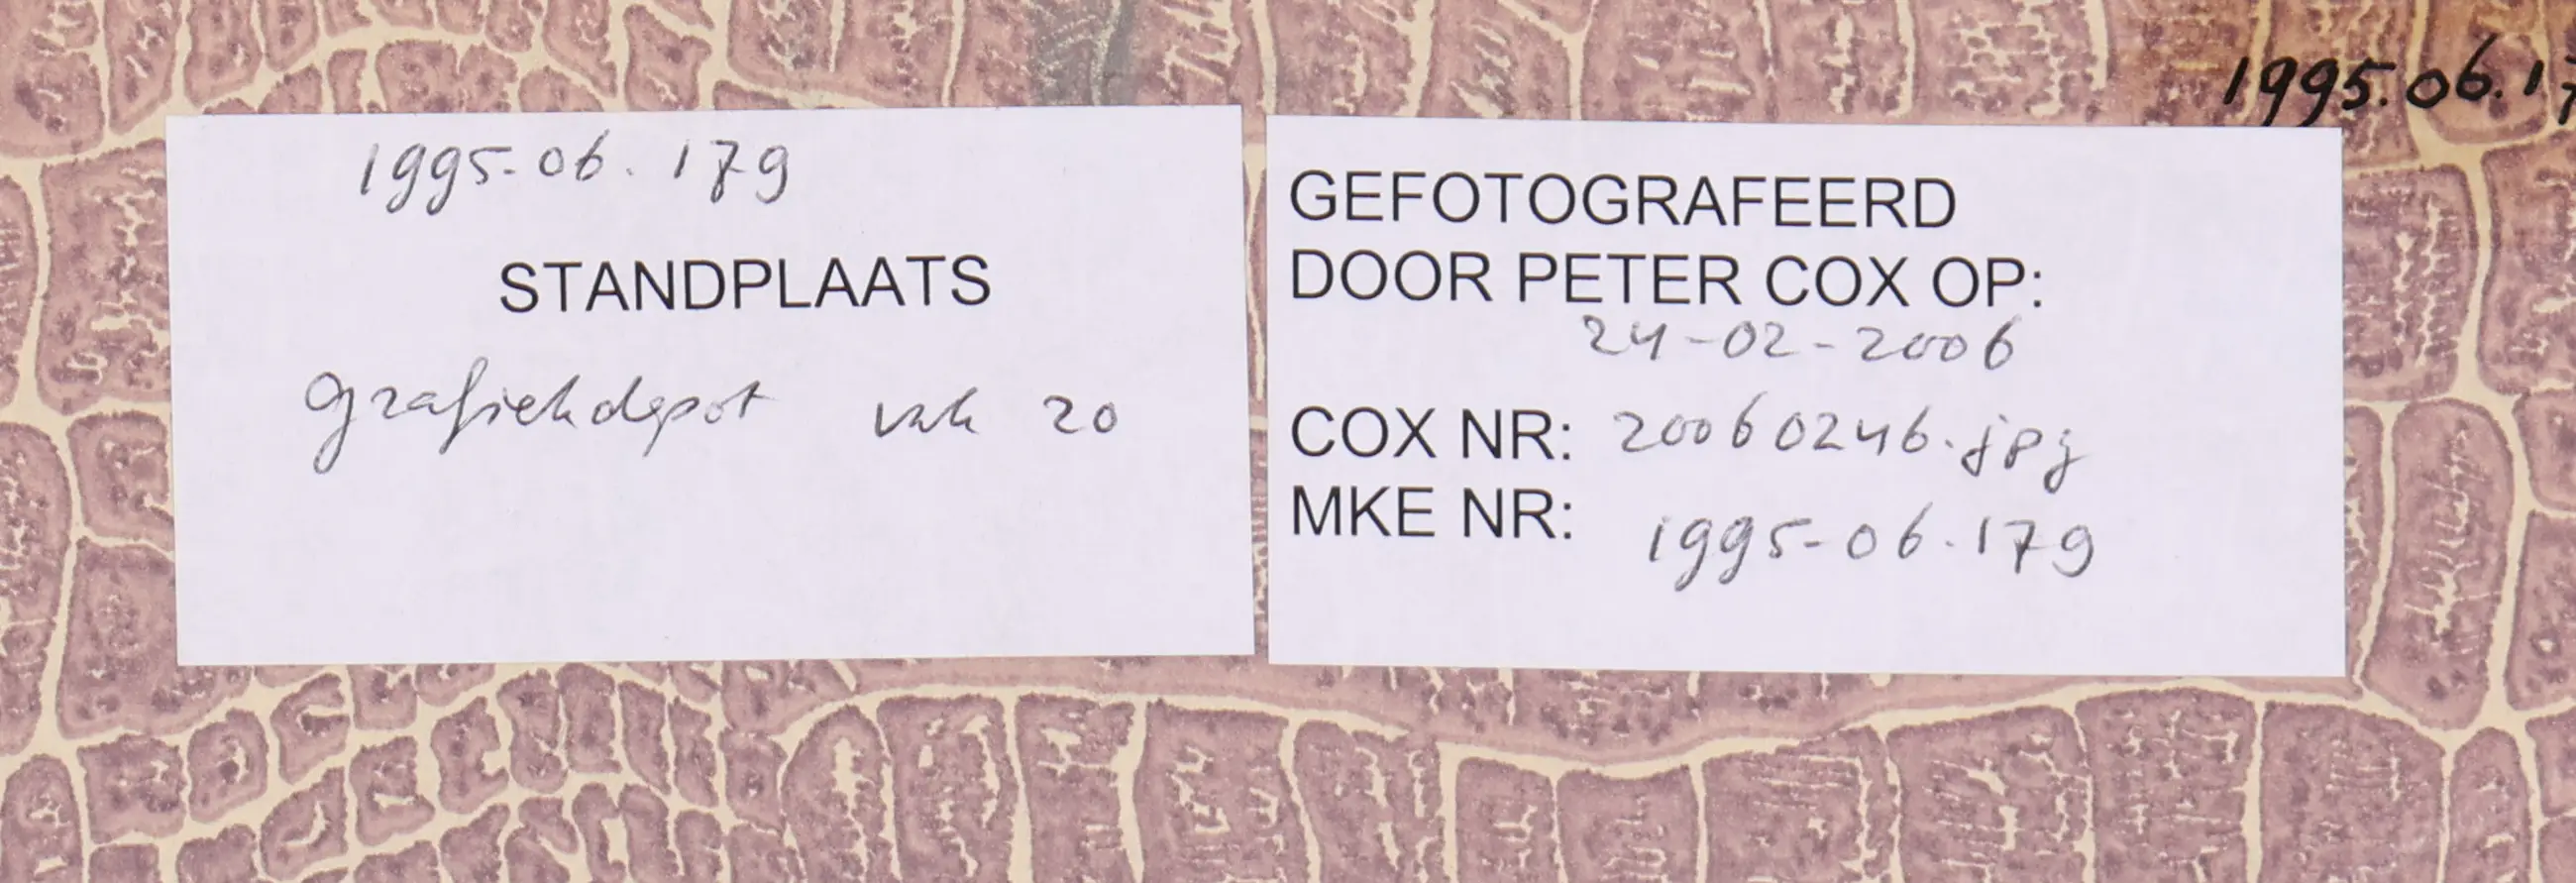 1995.06.17
1995.06.179
STANDPLAATS
grafiekdepot vak 20
GEFOTOGRAFEERD
DOOR PETER COX OP:
24-02-2006
COX NR: 20060246.jpg
MKE NR: 1995-06.179